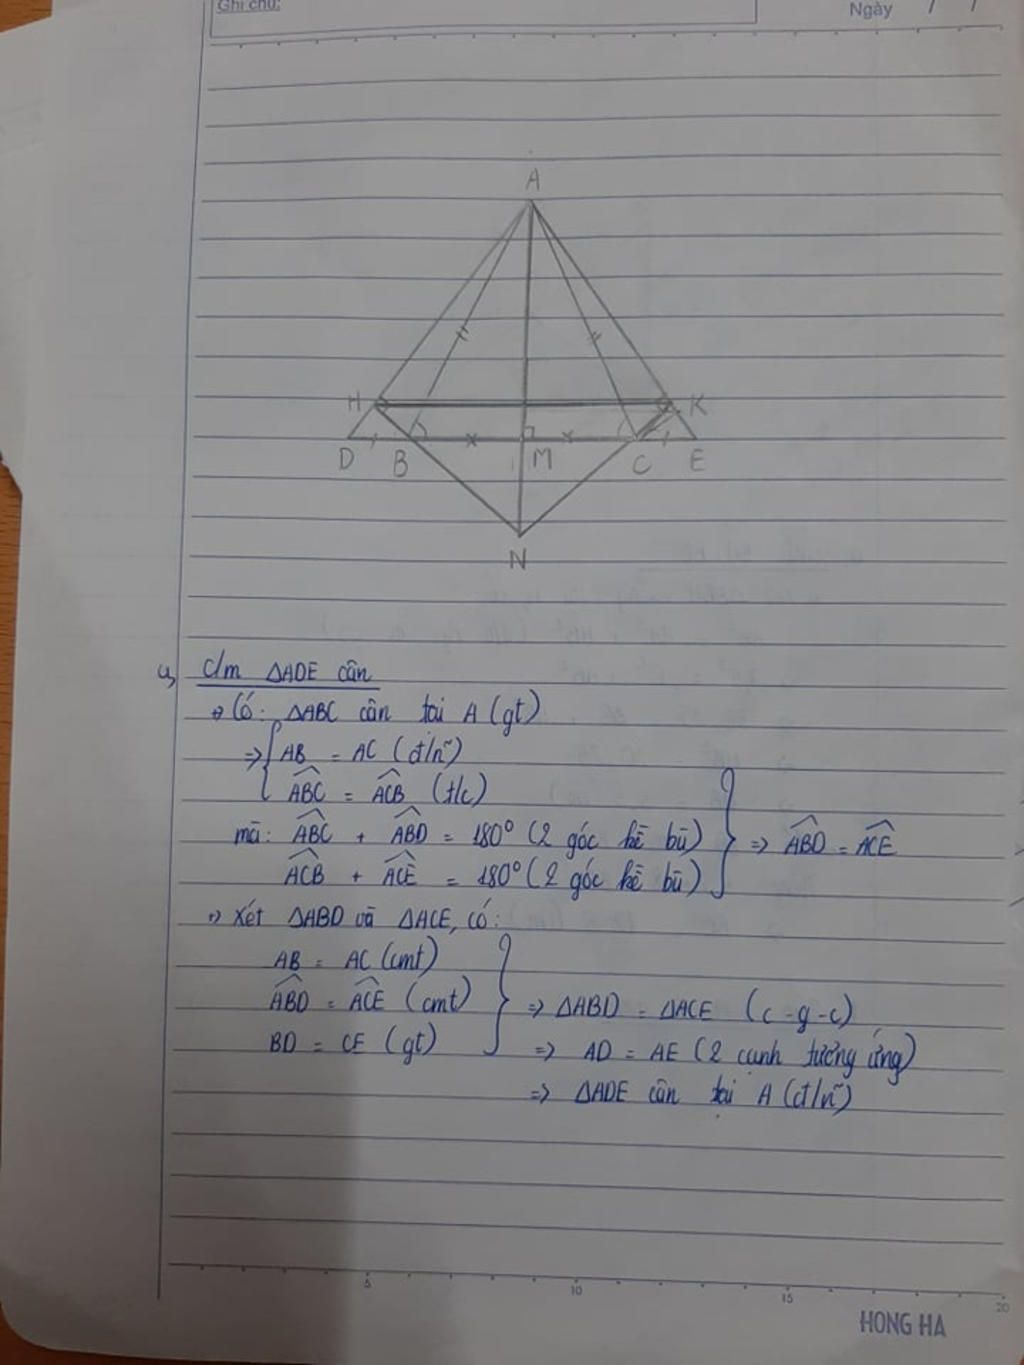 Ghi chú:
Ngày / /
A
H K
D B M C E
N
a, c/m ΔADE cân
+) Có: ΔABC cân tại A (gt)
=> { AB = AC (đ/n)
ABC = ACB (t/c)
mà: ABC + ABD = 180° (2 góc kề bù) } => ABD = ACE
ACB + ACE = 180° (2 góc kề bù)
+) Xét ΔABD và ΔACE, có:
AB = AC (cmt)
ABD = ACE (cmt) } => ΔABD = ΔACE (c-g-c)
BD = CE (gt) => AD = AE (2 cạnh tương ứng)
=> ΔADE cân tại A (đ/n)
5 10 15 20
HONG HA